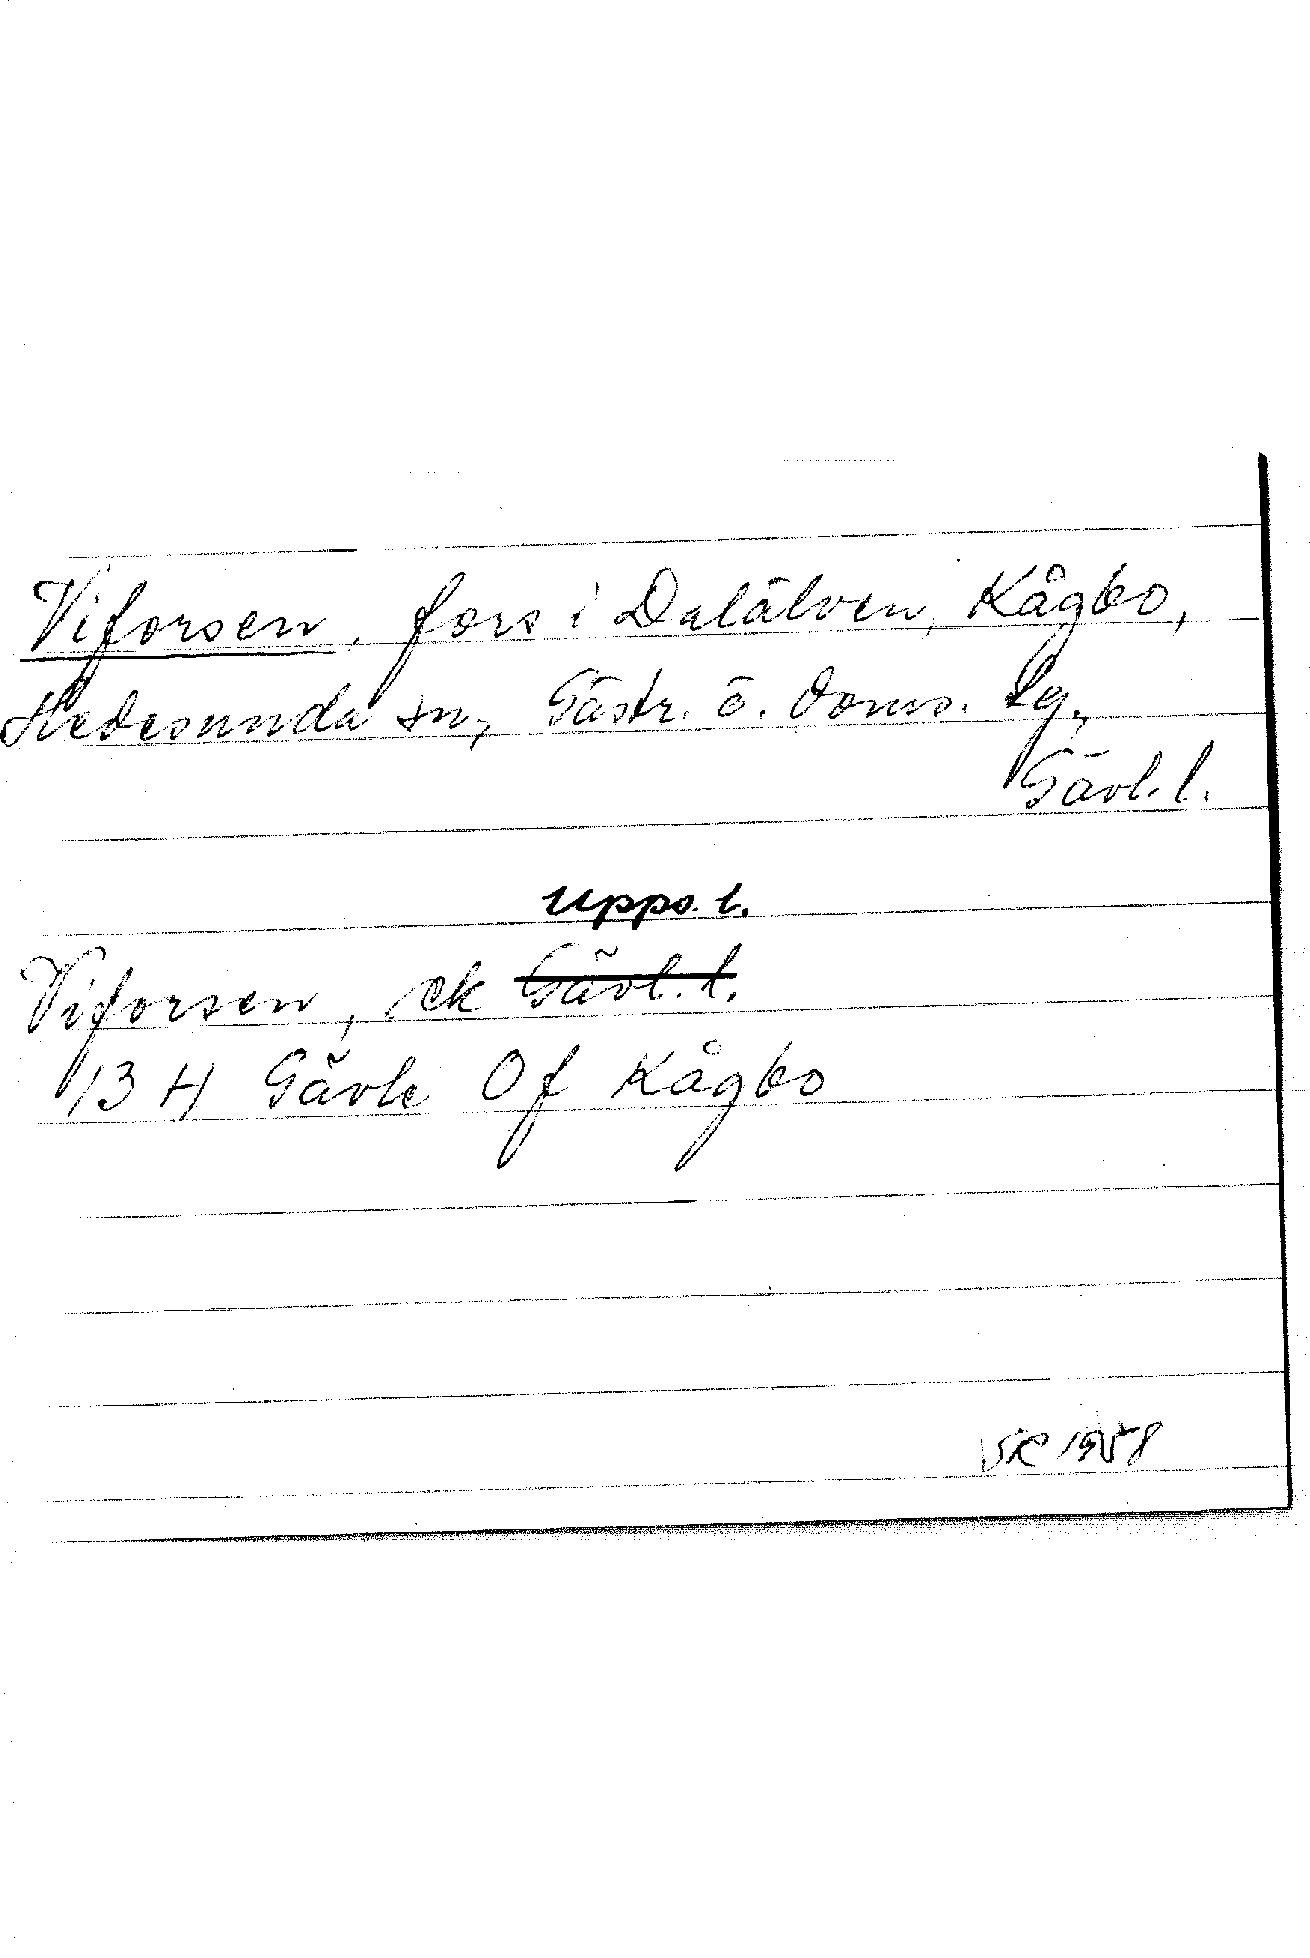 Viforsen, fors i Dalälven, Kågbo,
Hedesunda sn, Gästr. ö. doms. tg,
Gävl. l.
Upps. l.
Viforsen, ek Gävl. l.
13 H Gävle Of Kågbo
1958